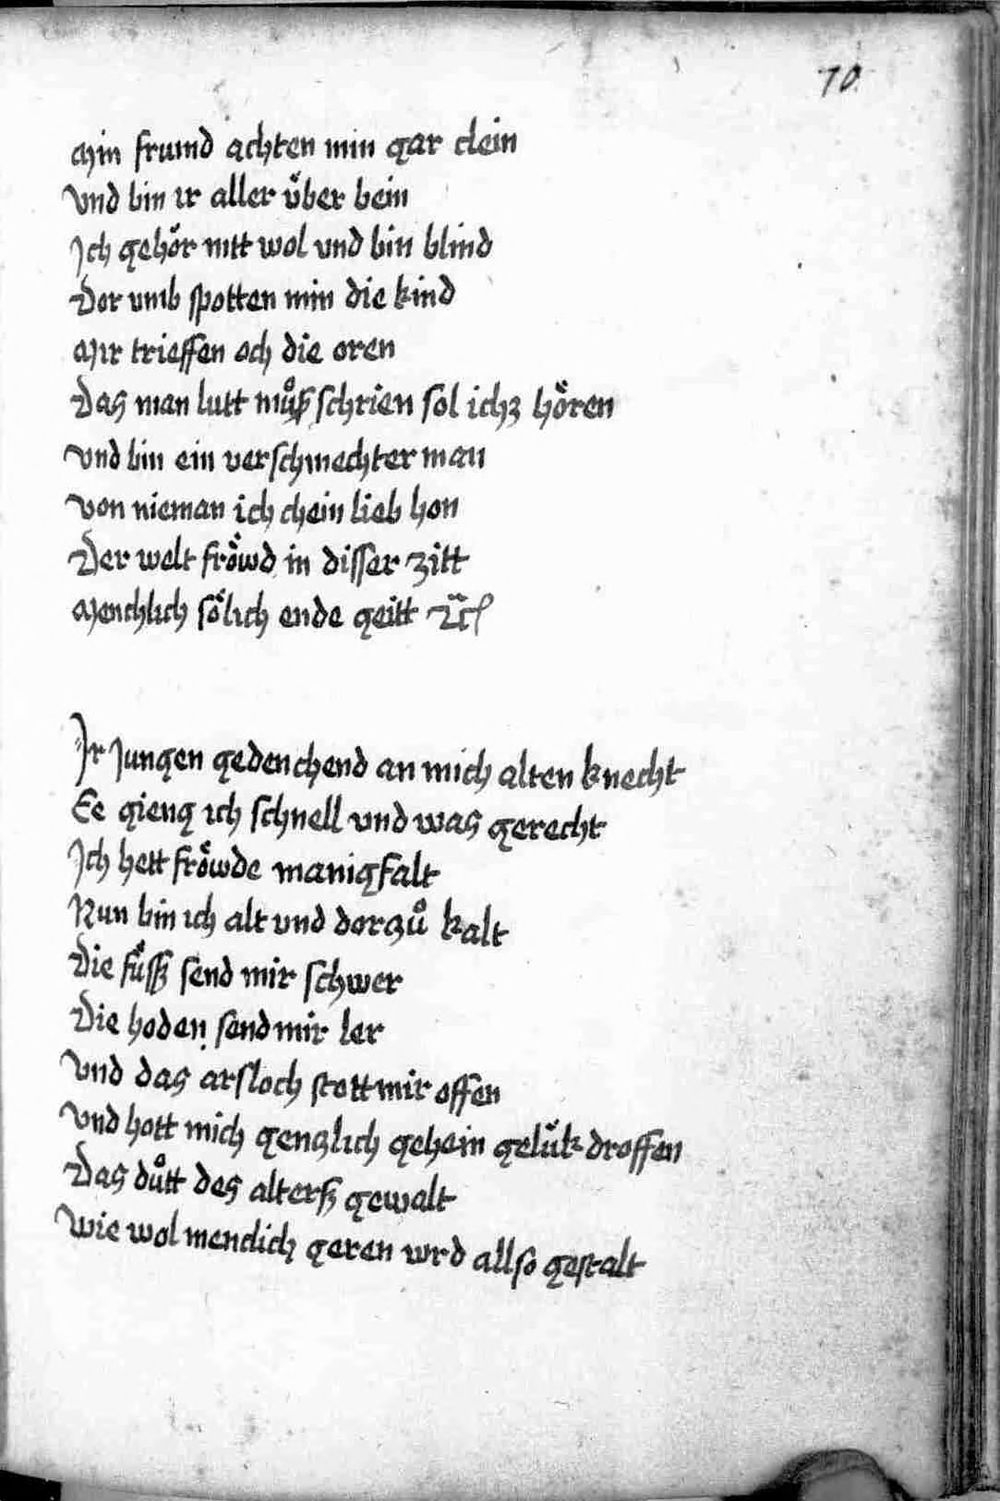 70
Min frund achten min gar clein
Vnd bin ir aller v̈ber bein
Ich gehör nitt wol vnd bin blind
Dor vmb spotten min die kind
Mir trieffen och die oren
Das man lutt můsß schrien sol ichz hören
Vnd bin ein verschmechter man
Von nieman ich chein lieb hon
Der welt fröwd in disser zitt
Menchlich sölich ende geitt
Ir Jungen gedenchend an mich alten knecht
Ee gieng ich schnell vnd was gerecht
Ich hett fröwde manigfalt
Nun bin ich alt vnd dorzů kalt
Die füssß send mir schwer
Die hoden send mir ler
Vnd das arsloch stett mir offen
Vnd hott mich genzlich gehein gelük droffen
Das důtt des altersß gewalt
Wie wol menclich geren wrd allso gestalt